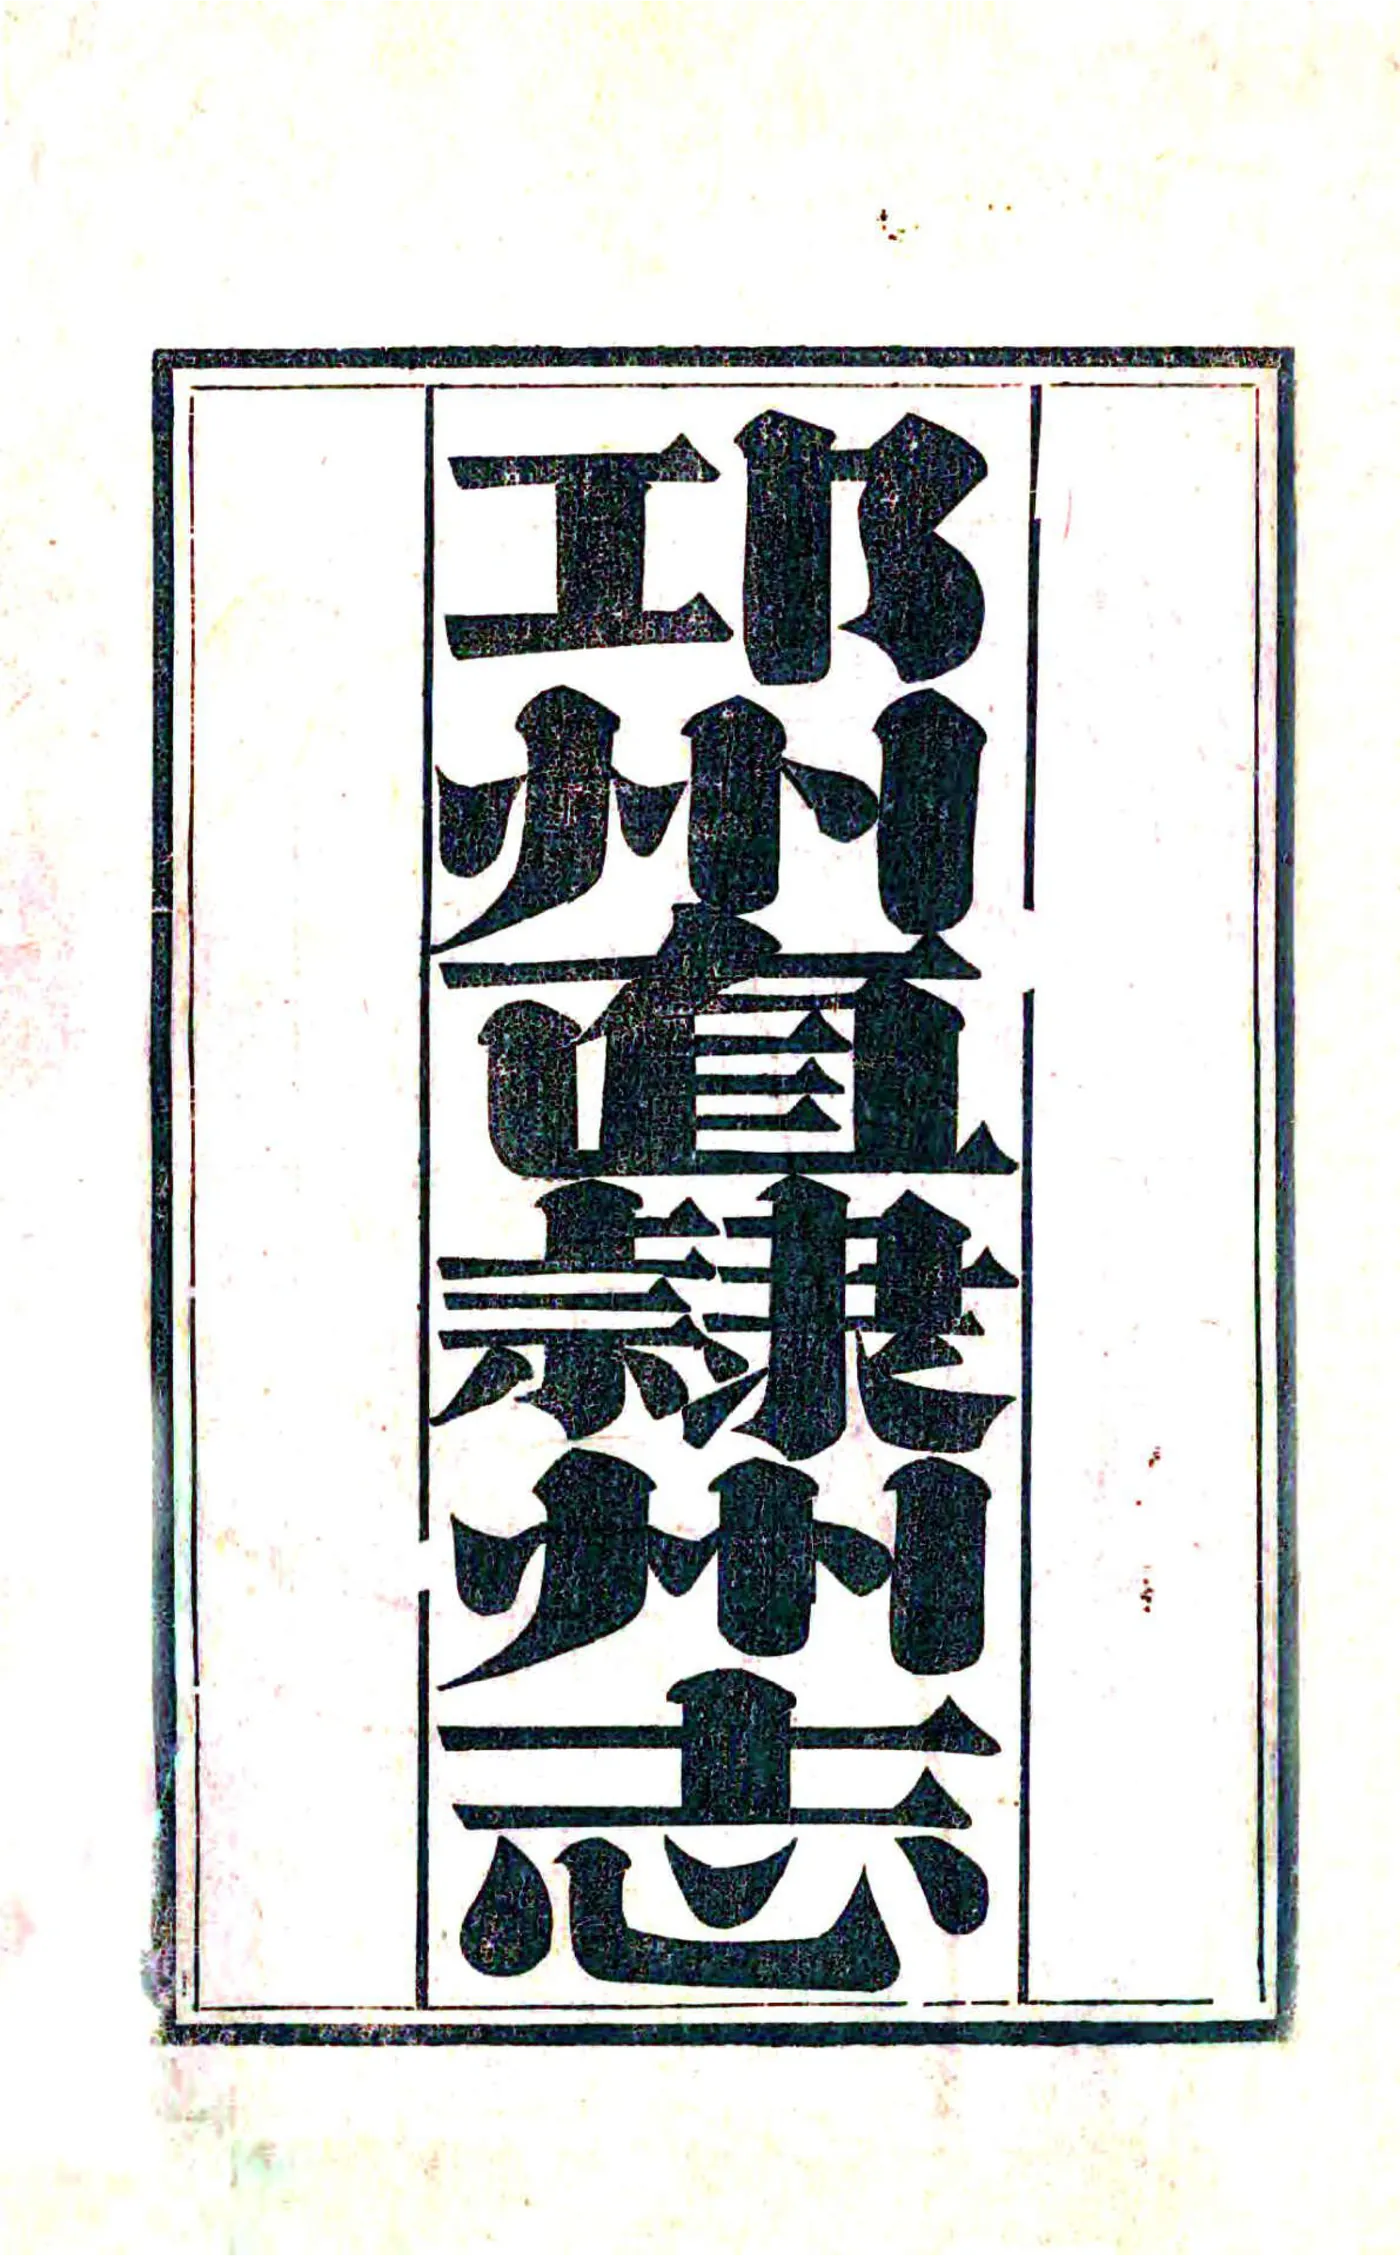 邛州直隷州志